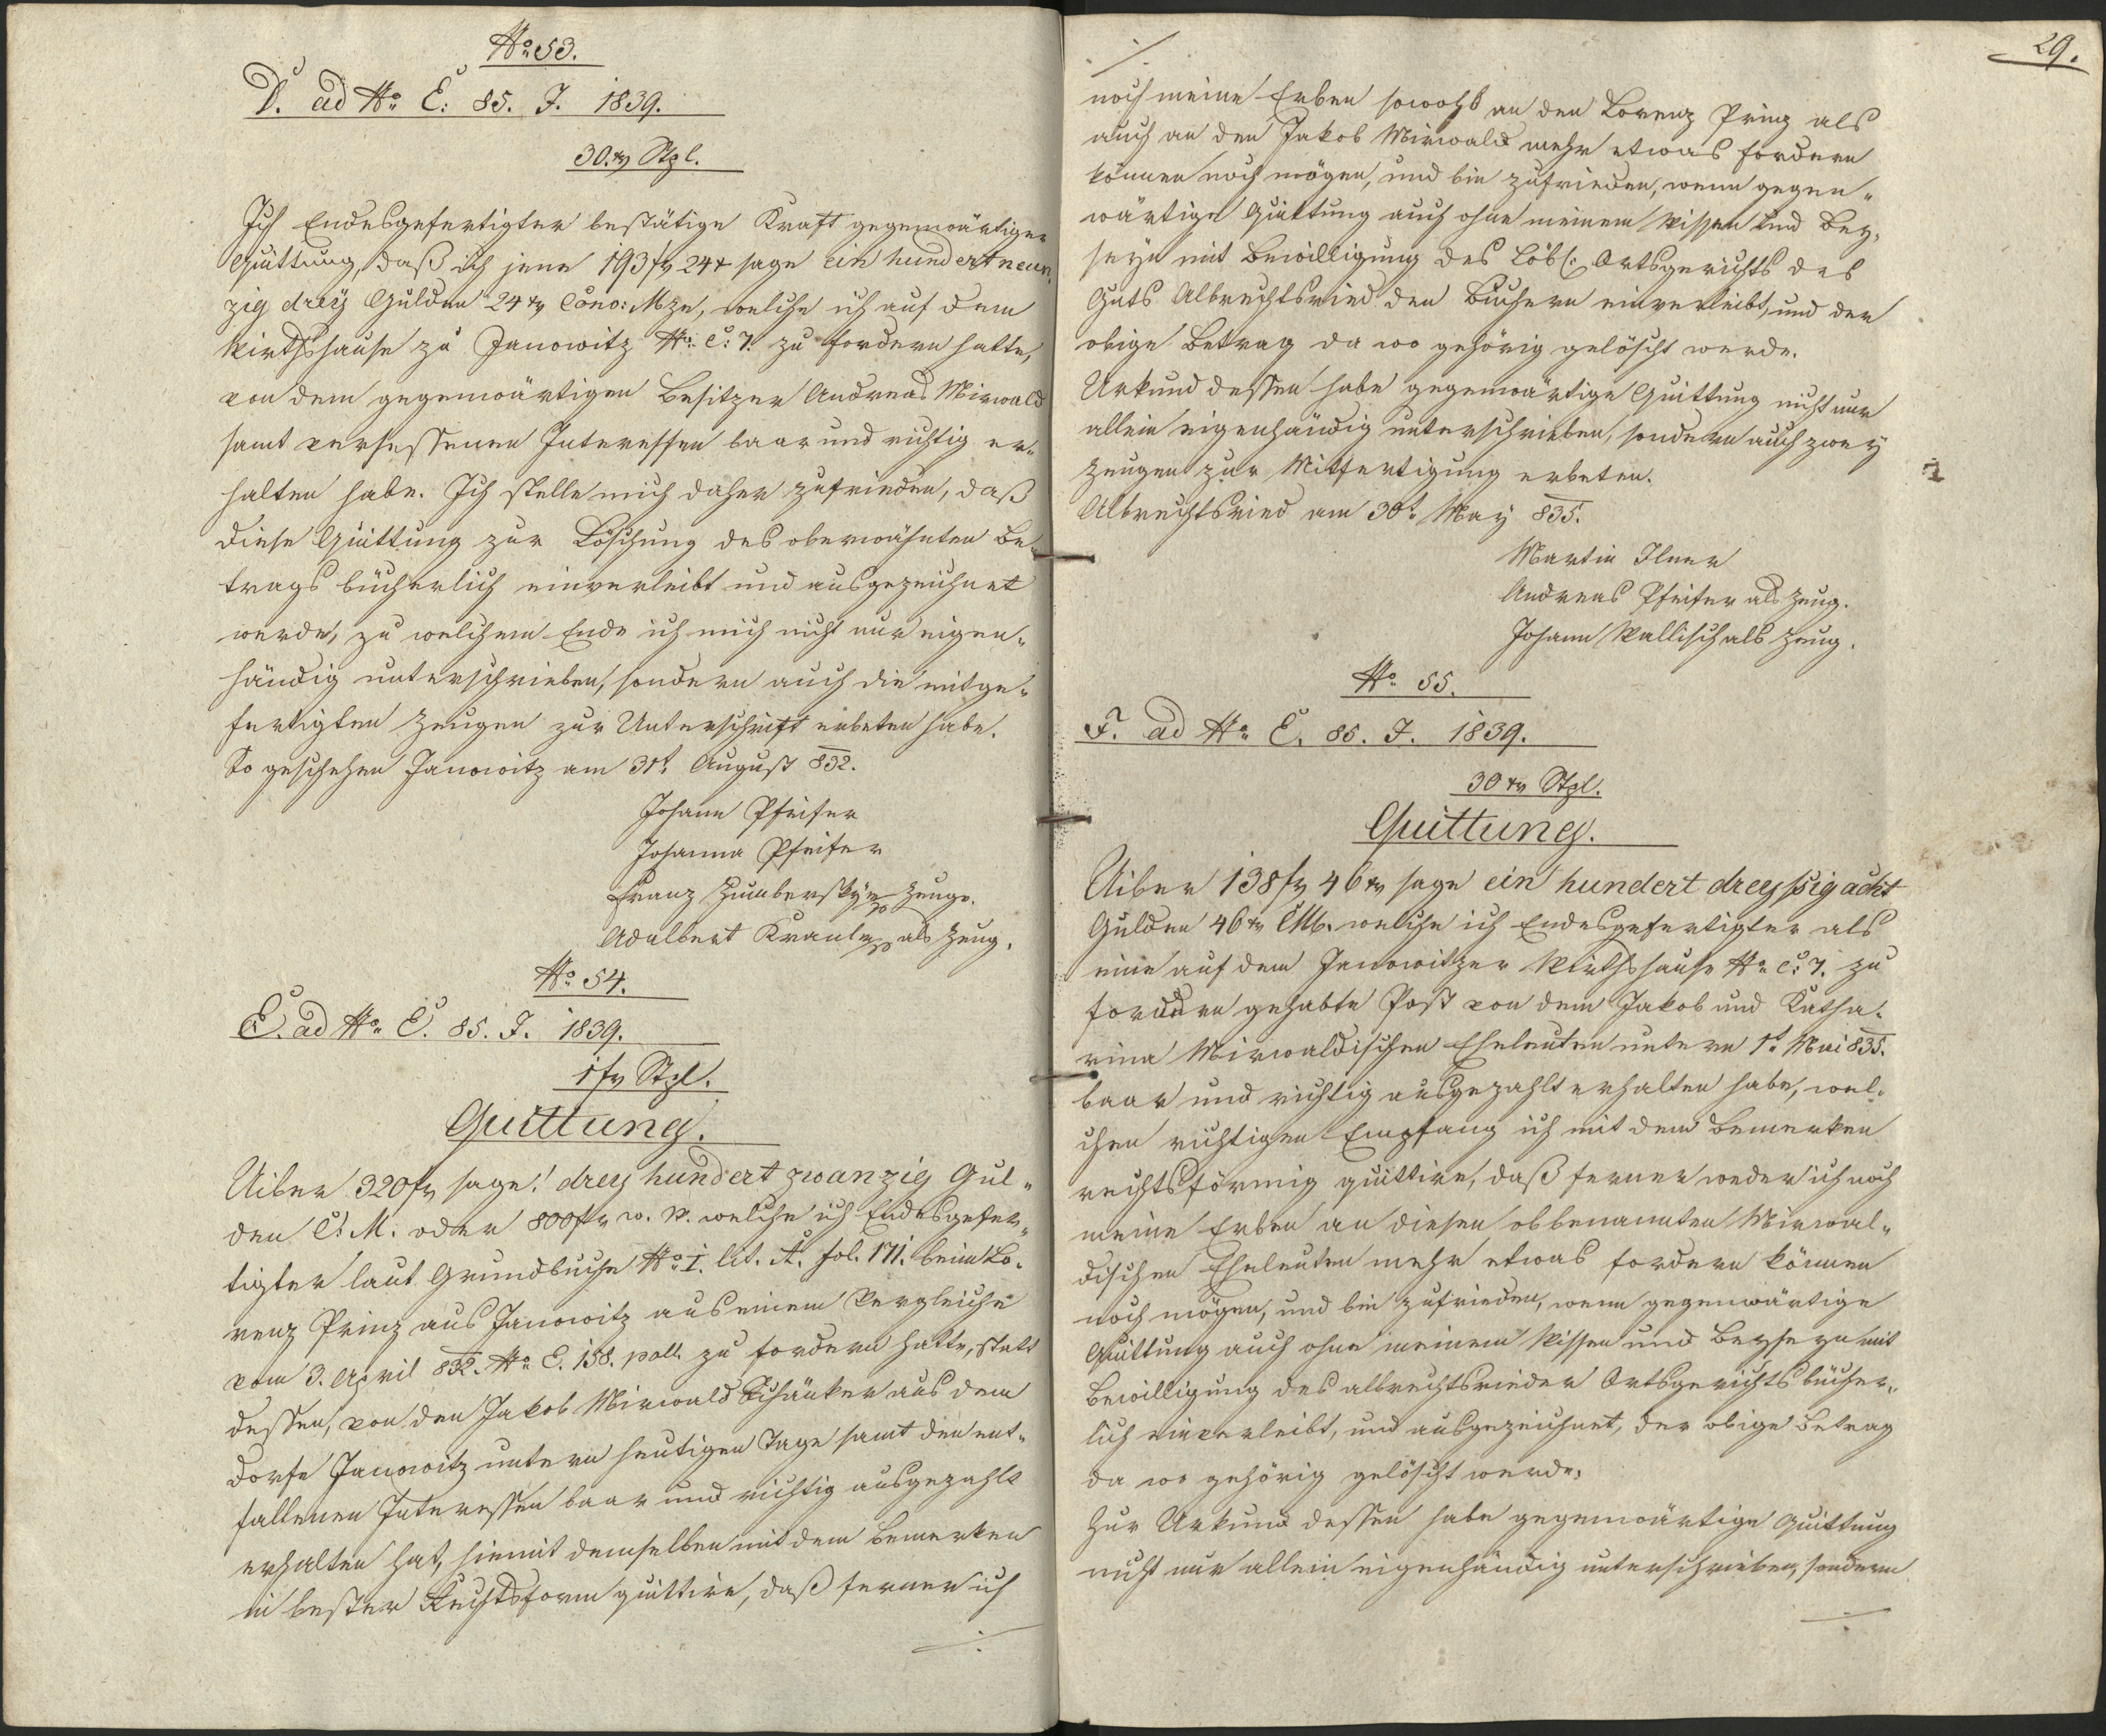 No. 53.
D. ad No. E. 85. J. 1839.
30. xr Stpl.
Ich Endesgefertigter bestätige Kraft gegenwärtiger
Quittung, daß ich jene 193 fr 24 x sage ein hundert neun„
zig dreÿ Gulden 24 xr Conv: Mze, welche ich auf dem
Wirthshause zu Janowitz No. C. 7. zu fordern hatte,
von dem gegenwärtigen Besitzer Andreas Mirwald
samt versessenen Interessen baar und richtig er„
halten habe. Ich stelle mich daher zufrieden, daß
diese Quittung zur Löschung des oberwähnten Be„
trags bücherlich einverleibt und ausgezeichnet
werde, zu welchem Ende ich mich nicht nur eigen„
händig unterschrieben, sondern auch die mitge„
fertigten Zeugen zur Unterschrift erbeten habe.
So geschehen Janowitz am 31t. August 832.
Johann Pfeifer
Johanna Pfeifer
Franz Zeuge.
Adalbert als Zeug.
No. 54.
E. ad No. E. 85. J. 1839.
1 fr Stpl.
Quittung.
Uiber 320 fr sage! dreÿ hundert zwanzig Gul„
den C. M. oder 800 fr w. W. welche ich Endesgefer„
tigter laut Grundbuche No. I. lit. A. fol. 171. beim Lo„
renz Prinz aus Janowitz aus einem Vergleiche
vom 3. April 832. No. E. 158. poll. zu fordern hatte, statt
dessen, von den Jakob Mirwald Schänker aus dem
Dorfe Janowitz untern heutigen Tage samt den ent„
fallenen Interessen baar und richtig ausgezahlt
erhalten hat, hiemit demselben mit dem Bemerken
in bester Rechtsform quittire, daß ferner ich
./.
29.
./.
noch meine Erben sowohl an den Lorenz Prinz als
auch an den Jakob Mirwald mehr etwas fordern
können noch mögen, und bin zufrieden, wenn gegen„
wärtige Quittung auch ohne meinem Wissen und Bey„
seyn mit Bewilligung des Löbl: Ortsgerichts des
Guts Albrechtsried den Büchern einverleibt, und der
obige Betrag da wo gehörig gelöscht werde.
Urkund dessen habe gegenwärtige Quittung nicht nur
allein eigenhändig unterschrieben, sondern auch zweÿ
Zeugen zur Mitfertigung erbeten.
Albrechtsried am 30t. Maÿ 835.
Martin Ilner
Andreas Pfeifer als Zeug.
Johann Wallisch als Zeug.
No. 55.
F. ad No. E. 85. J. 1839.
30 xr Stpl.
Quittung.
Uiber 138 fr 46 xr sage ein hundert dreyßig acht
Gulden 46 xr CM. welche ich Endesgefertigter als
eine auf dem Janowitzer Wirthshause No. C. 7. zu
fordern gehabte Post von dem Jakob und Katha„
rina Mirwaldischen Eheleuten untern 1t. Mai 835.
baar und richtig ausgezahlt erhalten habe, wel„
chen richtigen Empfang ich mit dem Bemerken
rechtsförmig quittire, daß ferner weder ich noch
meine Erben an diesen obbenannten Mirwal„
dischen Eheleuten mehr etwas fordern können
noch mögen, und bin zufrieden, wenn gegenwärtige
Quittung auch ohne meinem Wissen und Beyseyn mit
Bewilligung des albrechtsrieder Ortsgerichts bücher„
lich einverleibt, und ausgezeichnet, der obige Betrag
da wo gehörig gelöscht werde.
Zur Urkund dessen habe gegenwärtige Quittung
nicht nur allein eigenhändig unterschrieben, sondern
./.